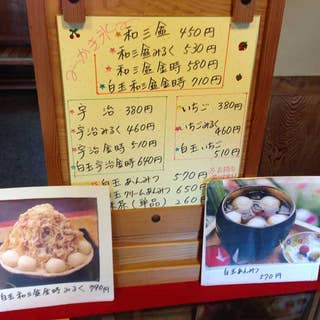 和三盆 450円
和三盆みるく 530円
和三盆金時 580円
白玉和三盆金時 710円
宇治 380円
宇治みるく 460円
宇治金時 510円
白玉宇治金時 640円
いちご 380円
いちごみるく 460円
白玉いちご 510円
白玉あんみつ 570円
白玉クリームあんみつ 650円
茶(単品) 260円
白玉和三盆金時みるく 790円
白玉あんみつ
570円